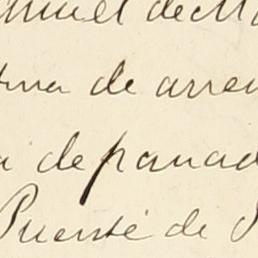 anuel de Ma
tura de arren
a de panad
Puente de